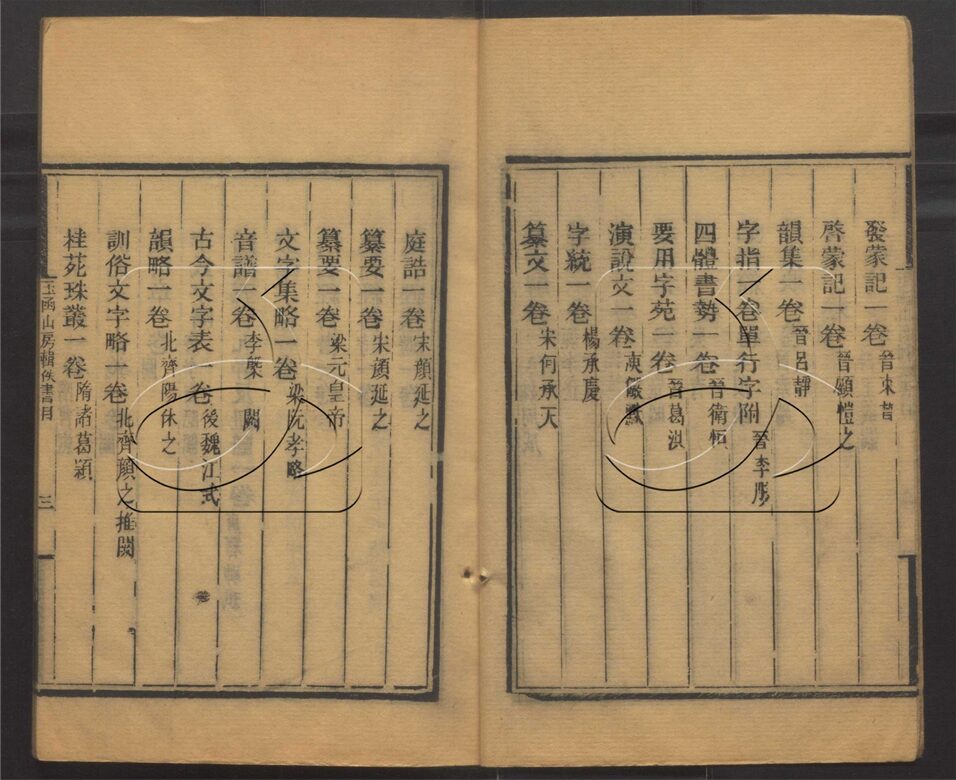 發蒙記一卷晉束晳
啓蒙記一卷晉顧愷之
韻集一卷晉呂靜
字指一卷單行字附晉李彤
四體書勢一卷晉衛恒
要用字苑一卷晉葛洪
演說文一卷庾儼默
字統一卷楊承慶
纂文一卷宋何承天
庭誥一卷宋顏延之
纂要一卷宋顏延之
纂要一卷梁元皇帝
文字集略一卷梁阮孝緒
音譜一卷李槩闕
古今文字表一卷後魏江式
韻略一卷北齊陽休之
訓俗文字略一卷北齊顏之推闕
桂苑珠叢一卷隋諸葛潁
玉函山房輯佚書目
三